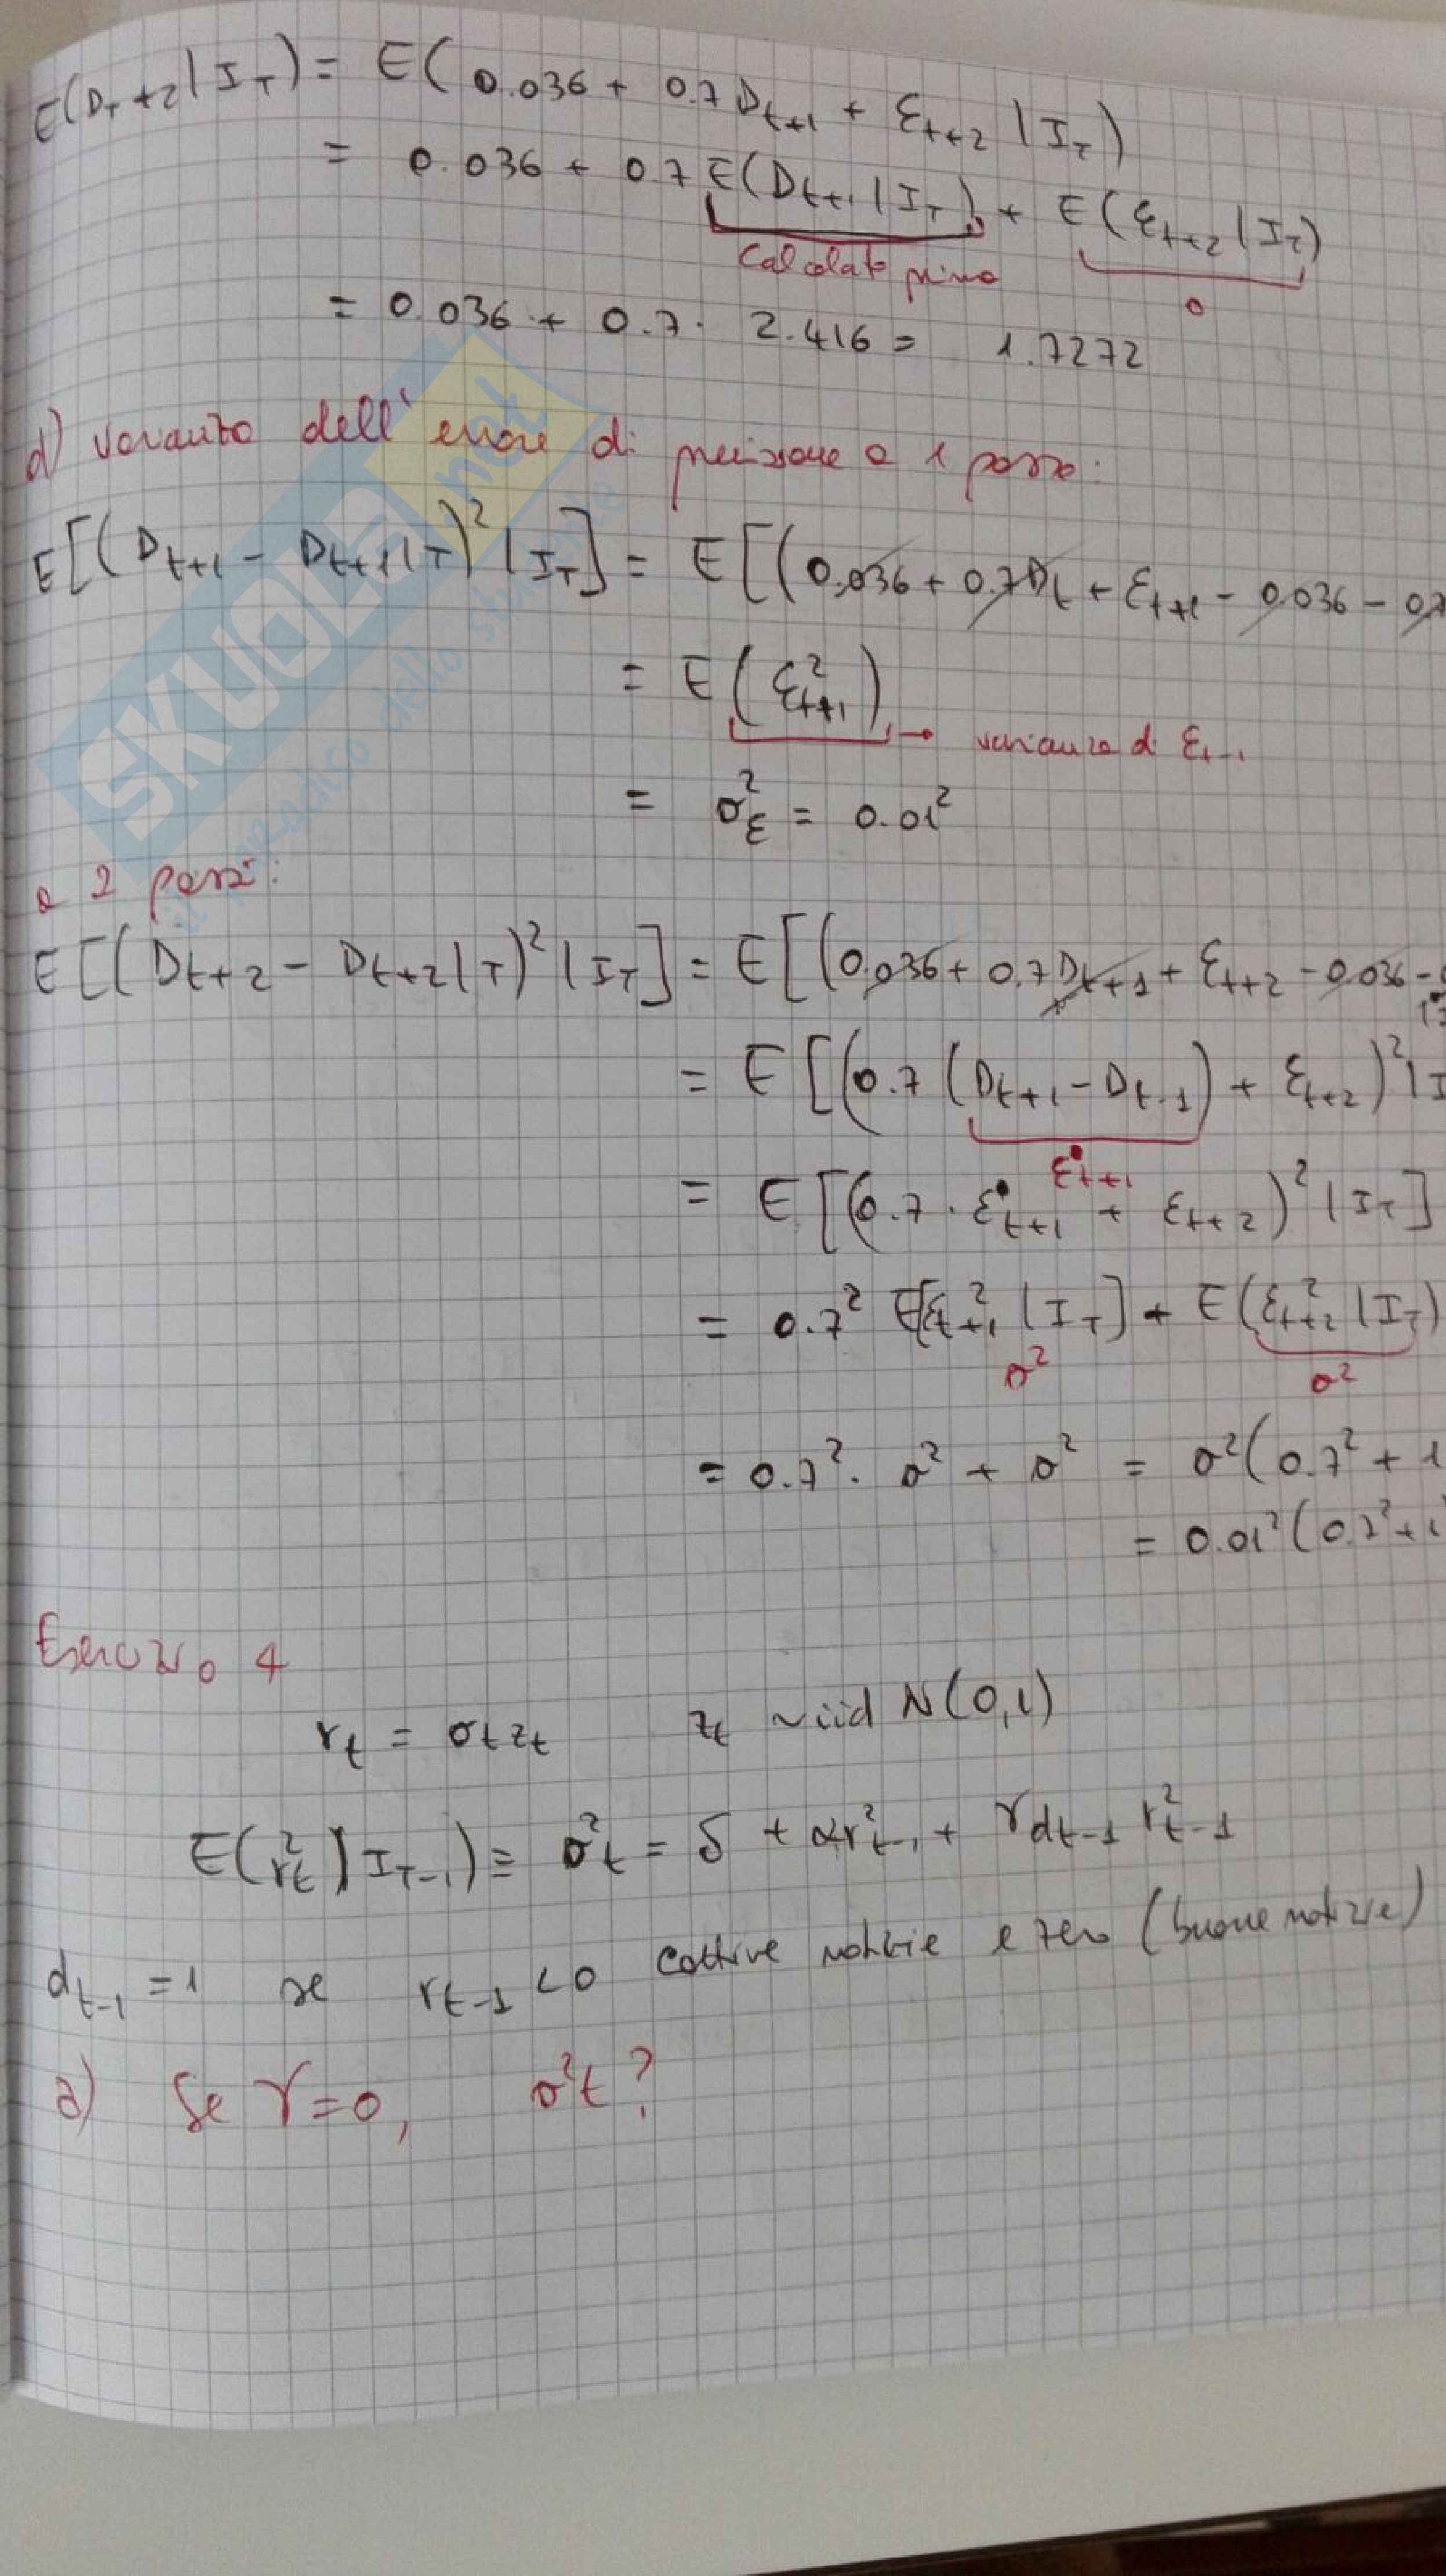 E(D_{T+2} | I_T) = E(0.036 + 0.7 D_{t+1} + ε_{t+2} | I_T)
= 0.036 + 0.7 E(D_{t+1} | I_T) + E(ε_{t+2} | I_T)
Calcolato prima
0
= 0.036 + 0.7 · 2.416 = 1.7272
d) varianza dell'errore di previsione a 1 passo:
E[(D_{t+1} - D_{t+1|T})² | I_T] = E[(0,036 + 0.7D_t + ε_{t+1} - 0,036 - 0,7
= E(ε²_{t+1}) → varianza di ε_{t-1}
= σ²_ε = 0.01²
a 2 passi:
E[(D_{t+2} - D_{t+2|T})² | I_T] = E[(0,036 + 0.7D_{t+1} + ε_{t+2} - 0.036 -
= E[(0.7 (D_{t+1} - D_{t-1}) + ε_{t+2})² | I
ε_{t+1}
= E[(0.7 · ε_{t+1} + ε_{t+2})² | I_T]
= 0.7² E[ε²_{t+1} | I_T] + E(ε²_{t+2} | I_T)
σ² σ²
= 0.7² · σ² + σ² = σ²(0.7² + 1
= 0.01²(0.7² + 1
Esercizio 4
r_t = σ_t z_t z_t ~ iid N(0,1)
E(r²_t | I_{T-1}) = σ²_t = δ + αr²_{t-1} + γd_{t-1} r²_{t-1}
d_{t-1} = 1 se r_{t-1} < 0 cattive notizie e zero (buone notizie)
a) Se γ = 0, σ²t ?
SKUOLA.net
il paradiso dello studente